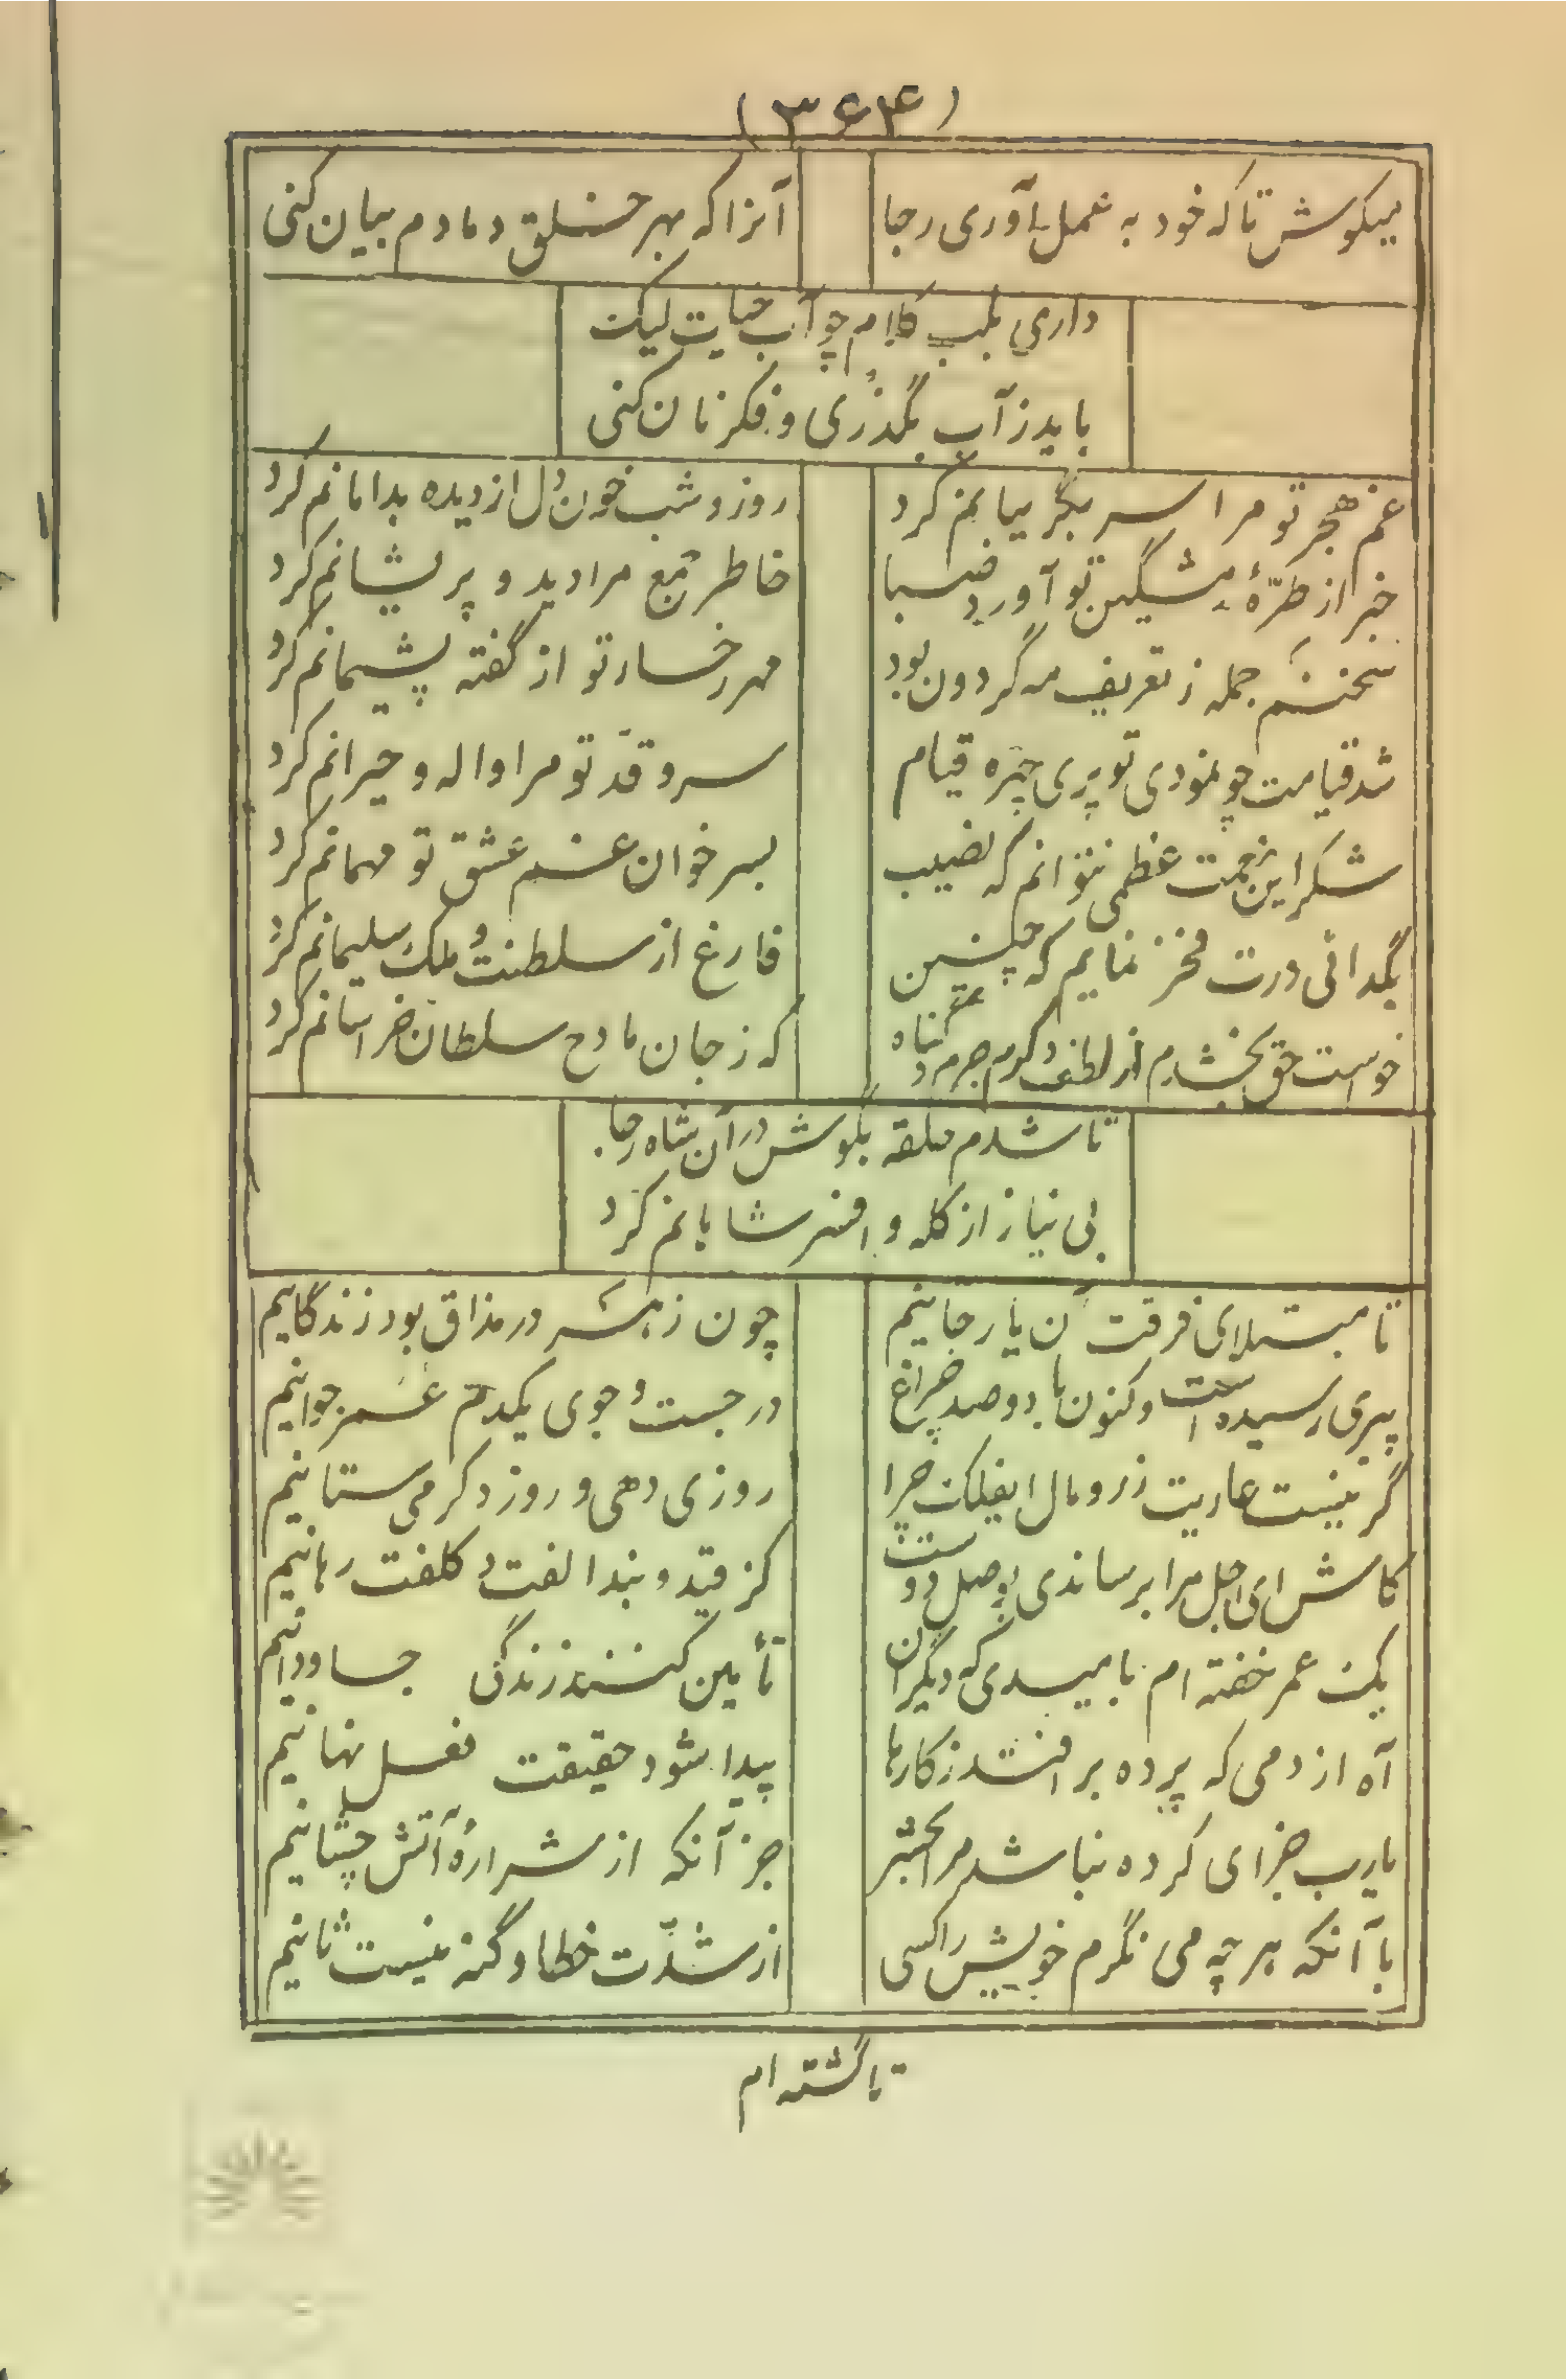 (۳۶۴)
میکوش تا که خود به عمل آوری رجا
آنرا که بهر خلق دمادم بیان کنی
داری بلب کلام چو آب حیات لیک
باید ز آب بگذری و فکر نان کنی
غم هجر تو مرا سر بگریبانم کرد
روز و شب خون دل از دیده بدامانم کرد
خبر از طرّهٔ مشگین تو آورد صبا
خاطر جمع مرا دید و پریشانم کرد
سخنم جمله ز تعریف مه گردون بود
مهر رخسار تو از گفته پشیمانم کرد
شد قیامت چو نمودی تو پری چهره قیام
سرو قدّ تو مرا واله و حیرانم کرد
شکر این نعمت عظمی نتوانم که نصیب
بسر خوان غم عشق تو مهمانم کرد
بگدائی درت فخر نمایم که چنین
فارغ از سلطنت و ملک سلیمانم کرد
خواست حق بخشدم از لطف و کرم جرم و گناه
که ز جان مادح سلطان خراسانم کرد
تا شدم حلقه بگوش در آن شاه رجا
بی نیاز از کله و افسر شاهانم کرد
تا مبتلای فرقت آن یار جانیم
چون زهر در مذاق بود زندگانیم
پیری رسیده است و کنون با دو صد چراغ
در جست و جوی یکدم عمر جوانیم
گر نیست عاریت زر و مال ایفلک چرا
روزی دهی و روز دگر می ستانیم
کاش ای اجل مرا برساندی بوصل دوست
کز قید و بند الفت و کلفت رهانیم
یک عمر خفته ام بامیدی که دیگران
تأمین کنند زندگی جاودانیم
آه از دمی که پرده بر افتد ز کارها
پیدا شود حقیقت فعل نهانیم
یارب جزای کرده نباشد مرا بحشر
جز آنکه از شرارهٔ آتش چشانیم
با آنکه هر چه می نگرم خویش را کسی
از شدّت خطا و گنه نیست ثانیم
تا گشته ام